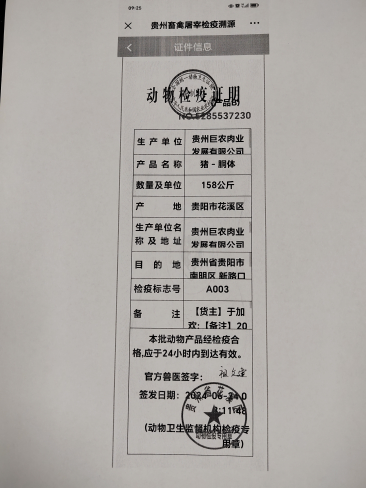 09:25
贵州畜禽屠宰检疫溯源
证件信息
动物检疫证明
NO.5285537230
生产单位 贵州巨农肉业
发展有限公司
产品名称 猪-胴体
数量及单位 158公斤
产地 贵阳市花溪区
生产单位名 贵州巨农肉业
称及地址 发展有限公司
目的地 贵州省贵阳市
南明区 新路口
检疫标志号 A003
备注 【货主】于加
欢:【备注】20
本批动物产品经检疫合
格,应于24小时内到达有效。
官方兽医签字:
签发日期: 2024-06-24 0
:11:48
(动物卫生监督机构检疫专
用章)